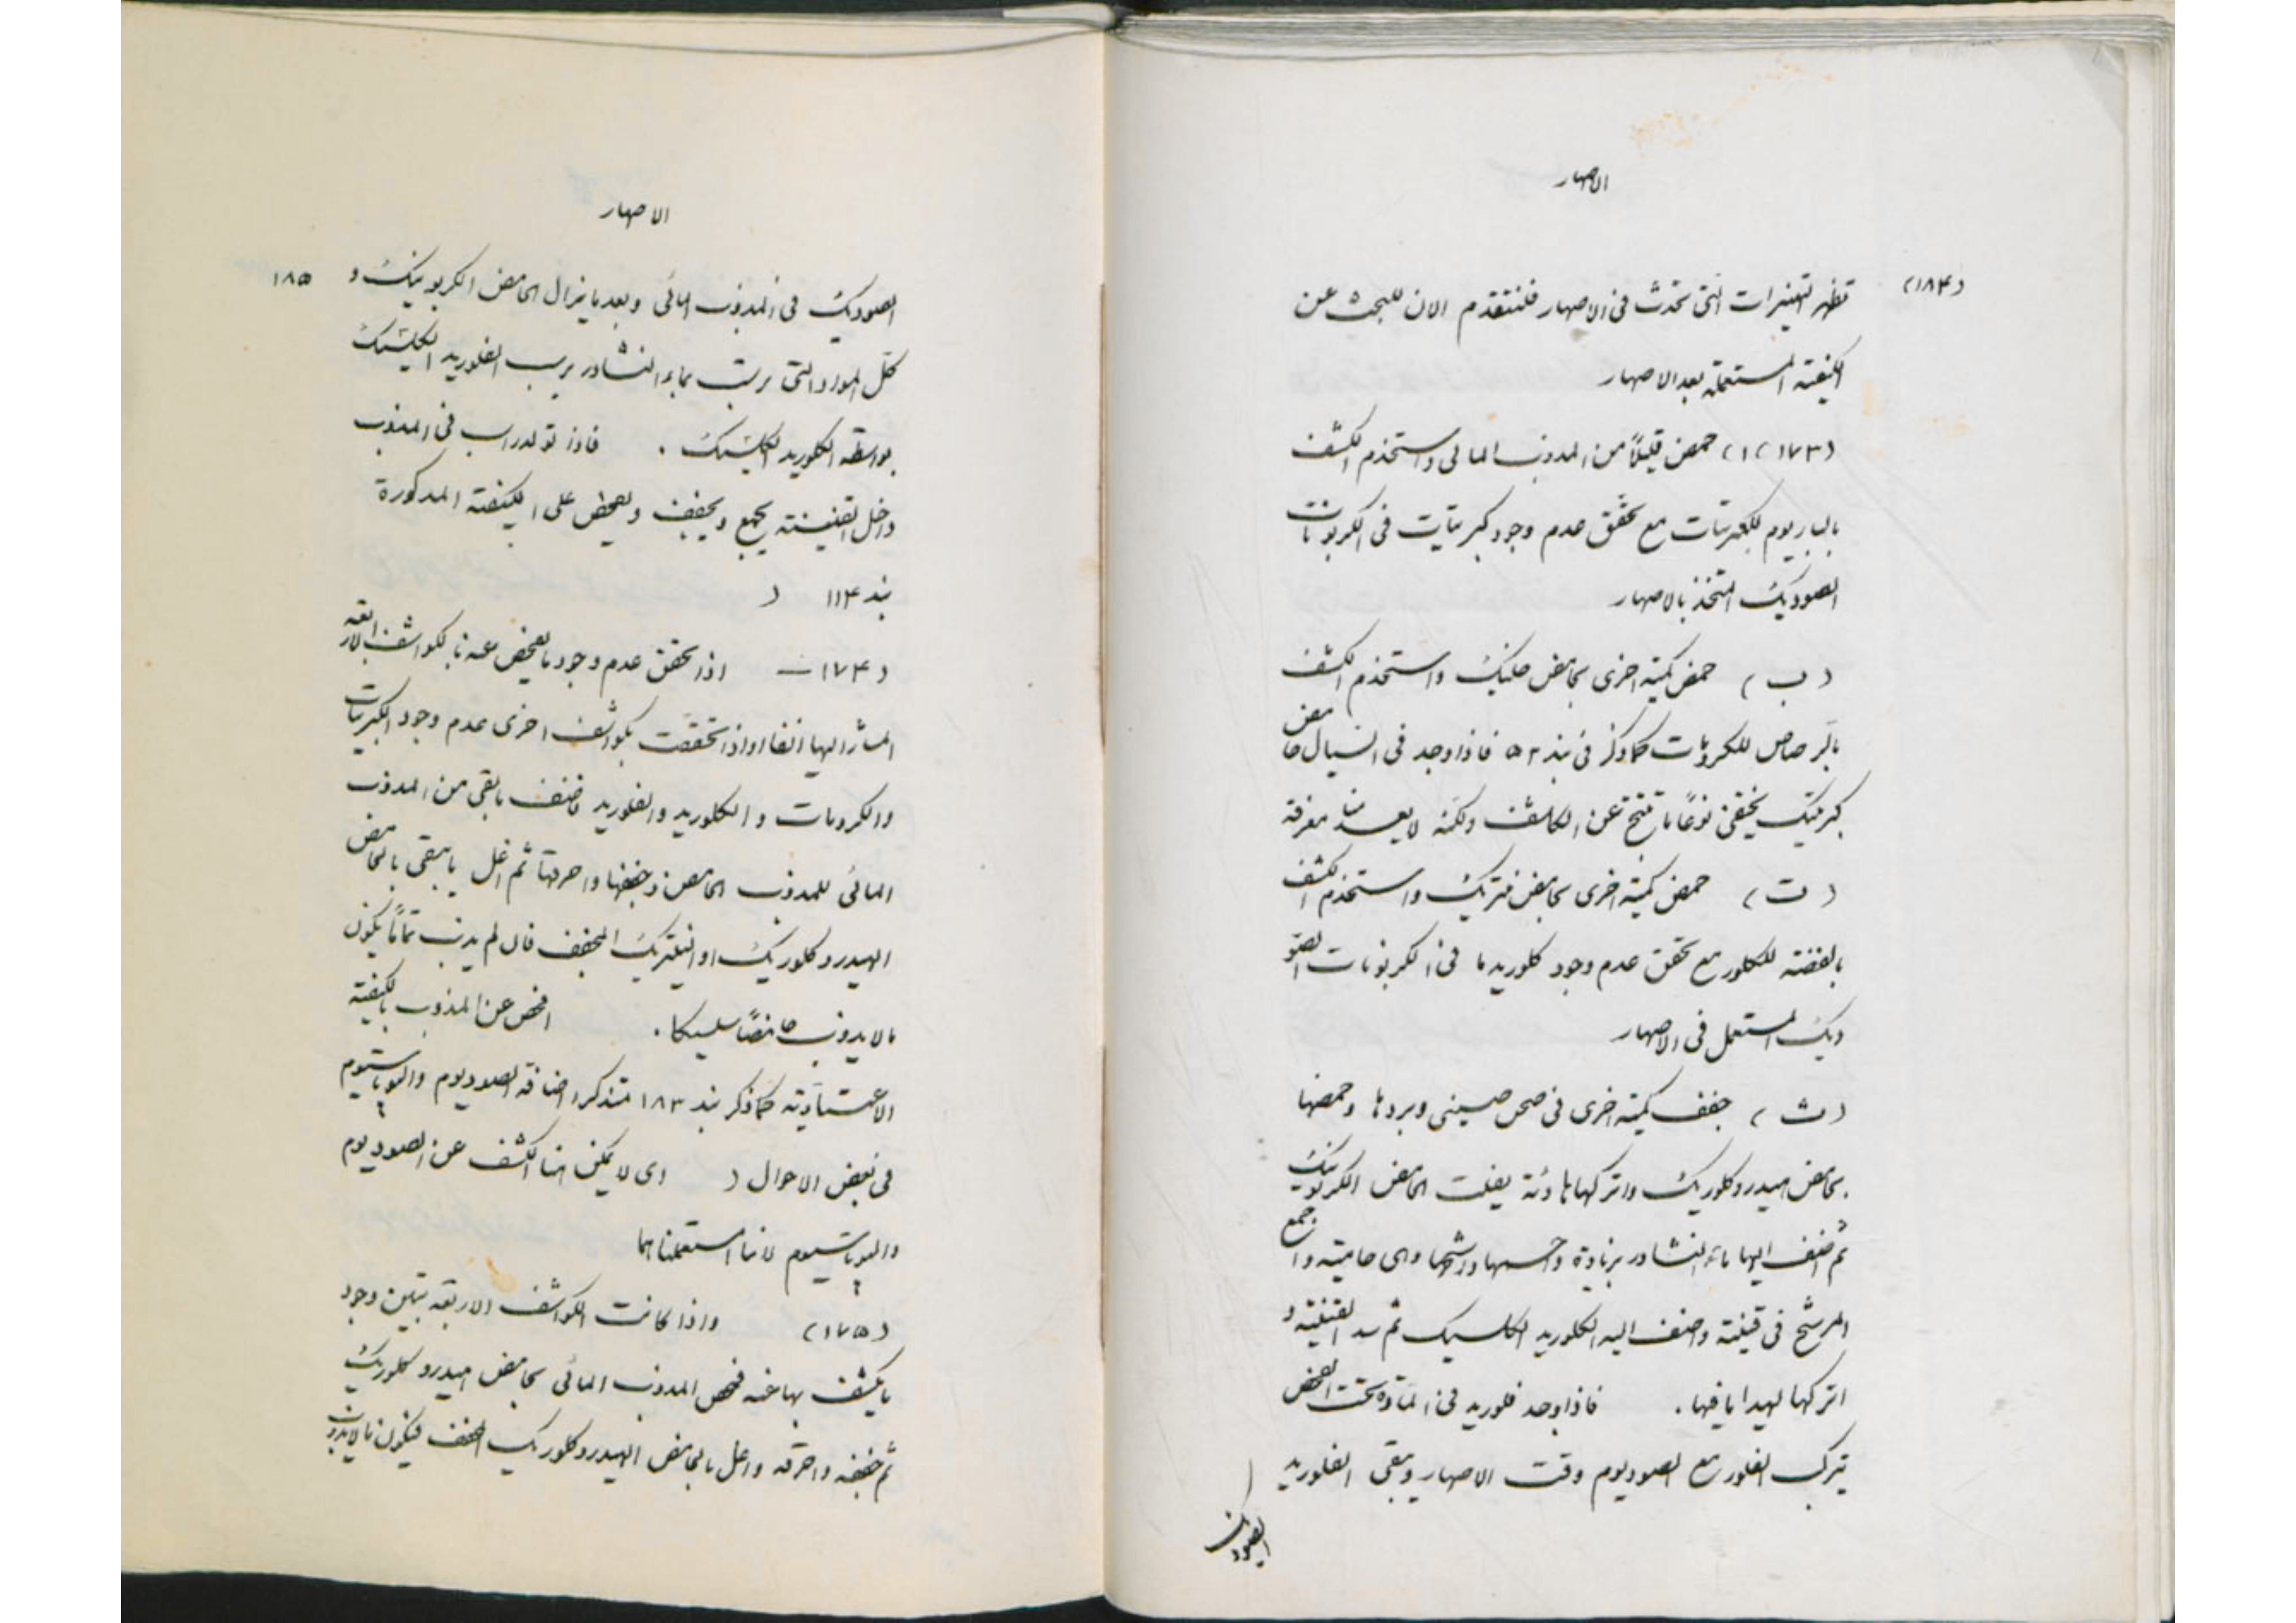 الاصهار
(١٨۴)
تظهر التغيرات التى تحدث فى الاصهار فلنتقدم الان للبحث عن
الكيفية المستعملة بعد الاصهار
(١٧٣) (١) حمض قليلاً من المذوب المائى واستخدم الكشف
بالباريوم للكبريتات مع تحقق عدم وجود كبريتات فى الكربونات
الصوديك المتخذ بالاصهار
(ب) حمض كمية اخرى بحامض خليك واستخدم الكشف
بالرصاص للكرومات كما ذكر فى بند ٥٣ فاذا وجد فى السيال حامض
كبريتيك يخفى نوعًا ما ينتج عن الكاشف ولكنه لا يعسر معرفة
(ت) حمض كمية اخرى بحامض نتريك واستخدم الكشف
بالفضة للكلور مع تحقق عدم وجود كلوريد ما فى الكربونات الصو
ديك المستعمل فى الاصهار
(ث) جفف كمية اخرى فى صحن صينى وبردها وحمضها
بحامض هيدروكلوريك واتركها هادئة يفلت الحامض الكربونيك
ثم اضف اليها ماء النشادر بزيادة وسخنها ورشحها وهى حامية واجمع
المرشح فى قنينة واضف اليه الكلوريد الكلسيك ثم سد القنينة و
اتركها ليهدا ما فيها . فاذا وجد فلوريد فى المادة تحت الفحص
يتركب الفلور مع الصوديوم وقت الاصهار ويبقى الفلوريد
الصوديك
الاصهار
١٨٥
الصوديك فى المذوب المائى وبعد ما يزال الحامض الكربونيك و
كل المواد التى تربت بماء النشادر يرسب الفلوريد الكلسيك
بواسطة الكلوريد الكلسيك . فاذا تولد راسب فى المذوب
داخل القنينة يجمع ويجفف ويفحص على الكيفية المذكورة
بند ١١۴ (
(١٧۴ — اذا تحقق عدم وجود ما يفحص عنه بالكواشف الاربعة
المشار اليها انفا او اذا تحققت بكواشف اخرى عدم وجود الكبريتات
والكرومات و الكلوريد والفلوريد فاضف ما بقى من المذوب
المائى للمذوب الحامض وجففها واحرقها ثم اغل ما يبقى بالحامض
الهيدروكلوريك او النيتريك المخفف فان لم يذب تمامًا يكون
ما لا يذوب حامضًا سليسيكا . افحص عن المذوب بالكيفية
الاعتيادية كما ذكر بند ١٨٣ متذكرا اضافة الصوديوم والبوتاسيوم
فى بعض الاحوال ( اى لا يمكن هنا الكشف عن الصوديوم
والبوتاسيوم لاننا استعملناهما
(١٧٥) واذا كانت الكواشف الاربعة تبين وجود
ما يكشف بها عنه فحمض المذوب المائى بحامض هيدروكلوريك
ثم جففه واحرقه واغل بالحامض الهيدروكلوريك المخفف فيكون ما لا يذوب